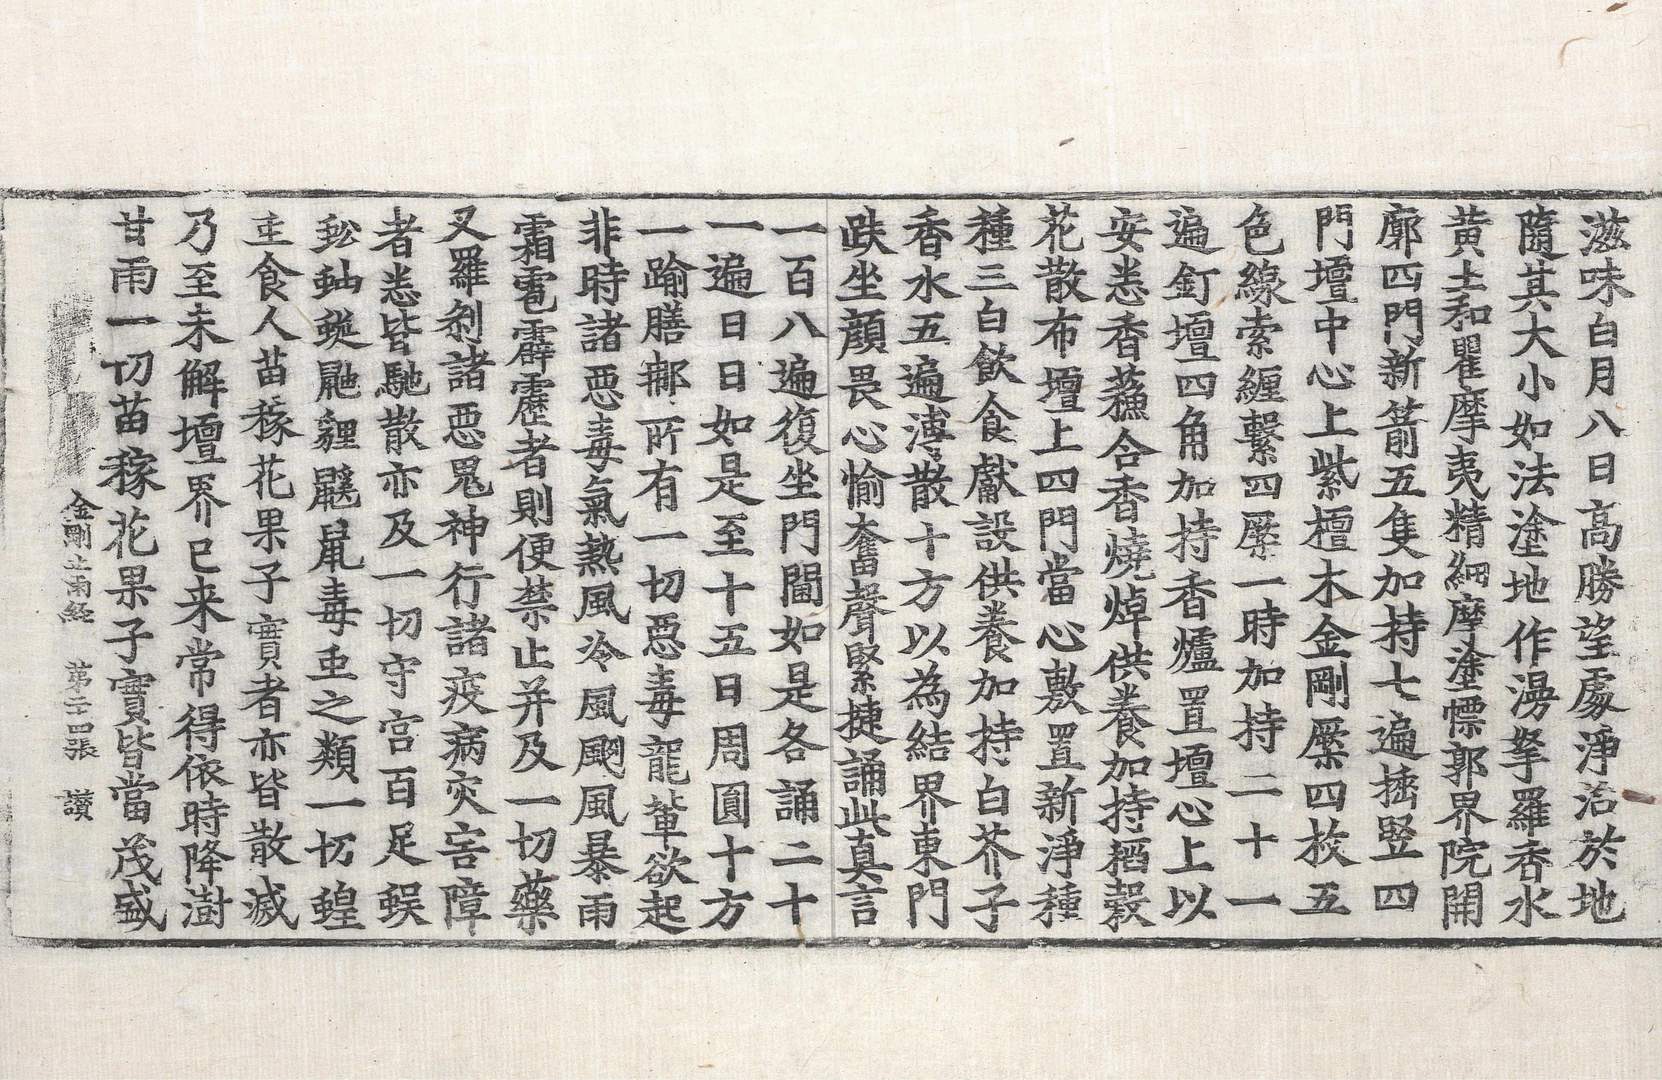 滋味白月八日高勝望處淨治於地
隨其大小如法塗地作湯拏羅香水
黃土和瞿摩夷精細摩塗㯹郭界院開
廓四門新箭五隻加持七遍揷竪四
門壇中心上紫檀木金剛橜四枚五
色線索纏繫四橜一時加持二十一
遍釘壇四角加持香爐置壇心上以
安悉香蘓合香燒焯供養加持稻穀
花散布壇上四門當心敷置新淨種
種三白飲食獻設供養加持白芥子
香水五遍遍溥散十方以為結界東門
趺坐顏畏心愉奮聲緊捷誦此真言
一百八遍復坐門閫如是各誦二十
一遍日日如是至十五日周圓十方
一踰膳那所有一切惡毒龍輩欲起
非時諸惡毒氣熱風冷風颲風暴雨
霜雹霹靂者則便禁止并及一切藥
叉羅剎諸惡鬼神行諸疫病灾害障
者悉皆馳散亦及一切守宮百足蜈
蚣蚰蜒鼬貍鼷鼠毒虫之類一切蝗
虫食人苗稼花果子實者亦皆散滅
乃至未解壇界已来常得依時降澍
甘雨一切苗稼花果子實皆當茂盛
金剛止雨經 第二十四張 讃